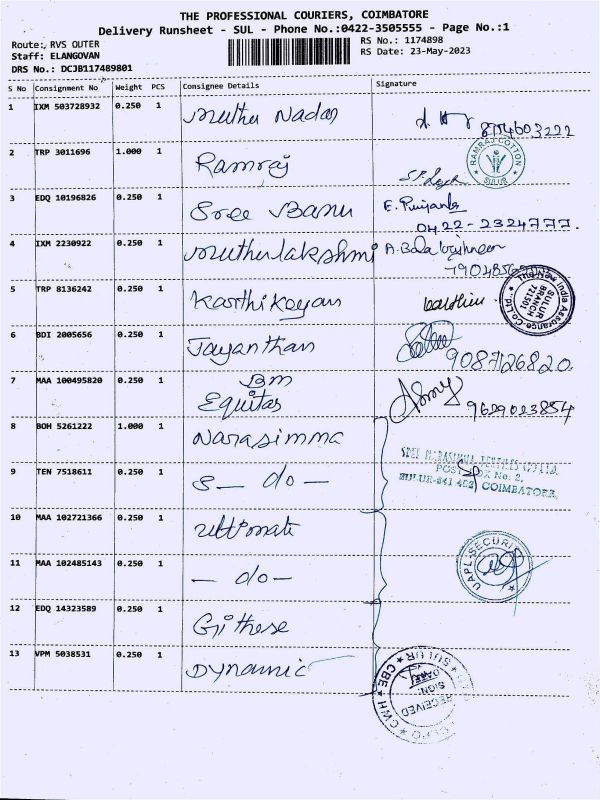 THE PROFESSIONAL COURIERS, COIMBATORE
Delivery Runsheet - SUL - Phone No.:0422-3505555 - Page No.:1
Route:, RVS OUTER
RS No.: 1174898
Staff: ELANGOVAN
RS Date: 23-May-2023
DRS No.: DCJB117489801
S No Consignment No Weight PCS Consignee Details Signature
1 IXM 503728932 0.250 1 Muthu Nadar 8754603222
2 TRP 3011696 1.000 1 Ramraj
RAMRAJ COTTON
SULUR
3 EDQ 10196826 0.250 1 Sree Banu E. Priyanka
0422-2324777.
4 IXM 2230922 0.250 1 Muthulakshmi A. Balakrishnan
5 TRP 8136242 0.250 1 Karthikeyan
The New India Assurance Co. Ltd.
SULUR
BRANCH
721501
6 BDI 2005656 0.250 1 Jayanthan
9087126820.
7 MAA 100495820 0.250 1 BM
Equitas 9629023854
8 BOH 5261222 1.000 1 Narasimma
POST BOX No. 2,
SULUR-641 402, COIMBATORE.
9 TEN 7518611 0.250 1 S — do —
10 MAA 102721366 0.250 1 Ultimate
UAPL-SECURITY
11 MAA 102485143 0.250 1 — do —
12 EDQ 14323589 0.250 1 Githese
13 VPM 5038531 0.250 1 Dynamic
SULUR
CWH
CBE
RECEIVED
SIGN.
DATE